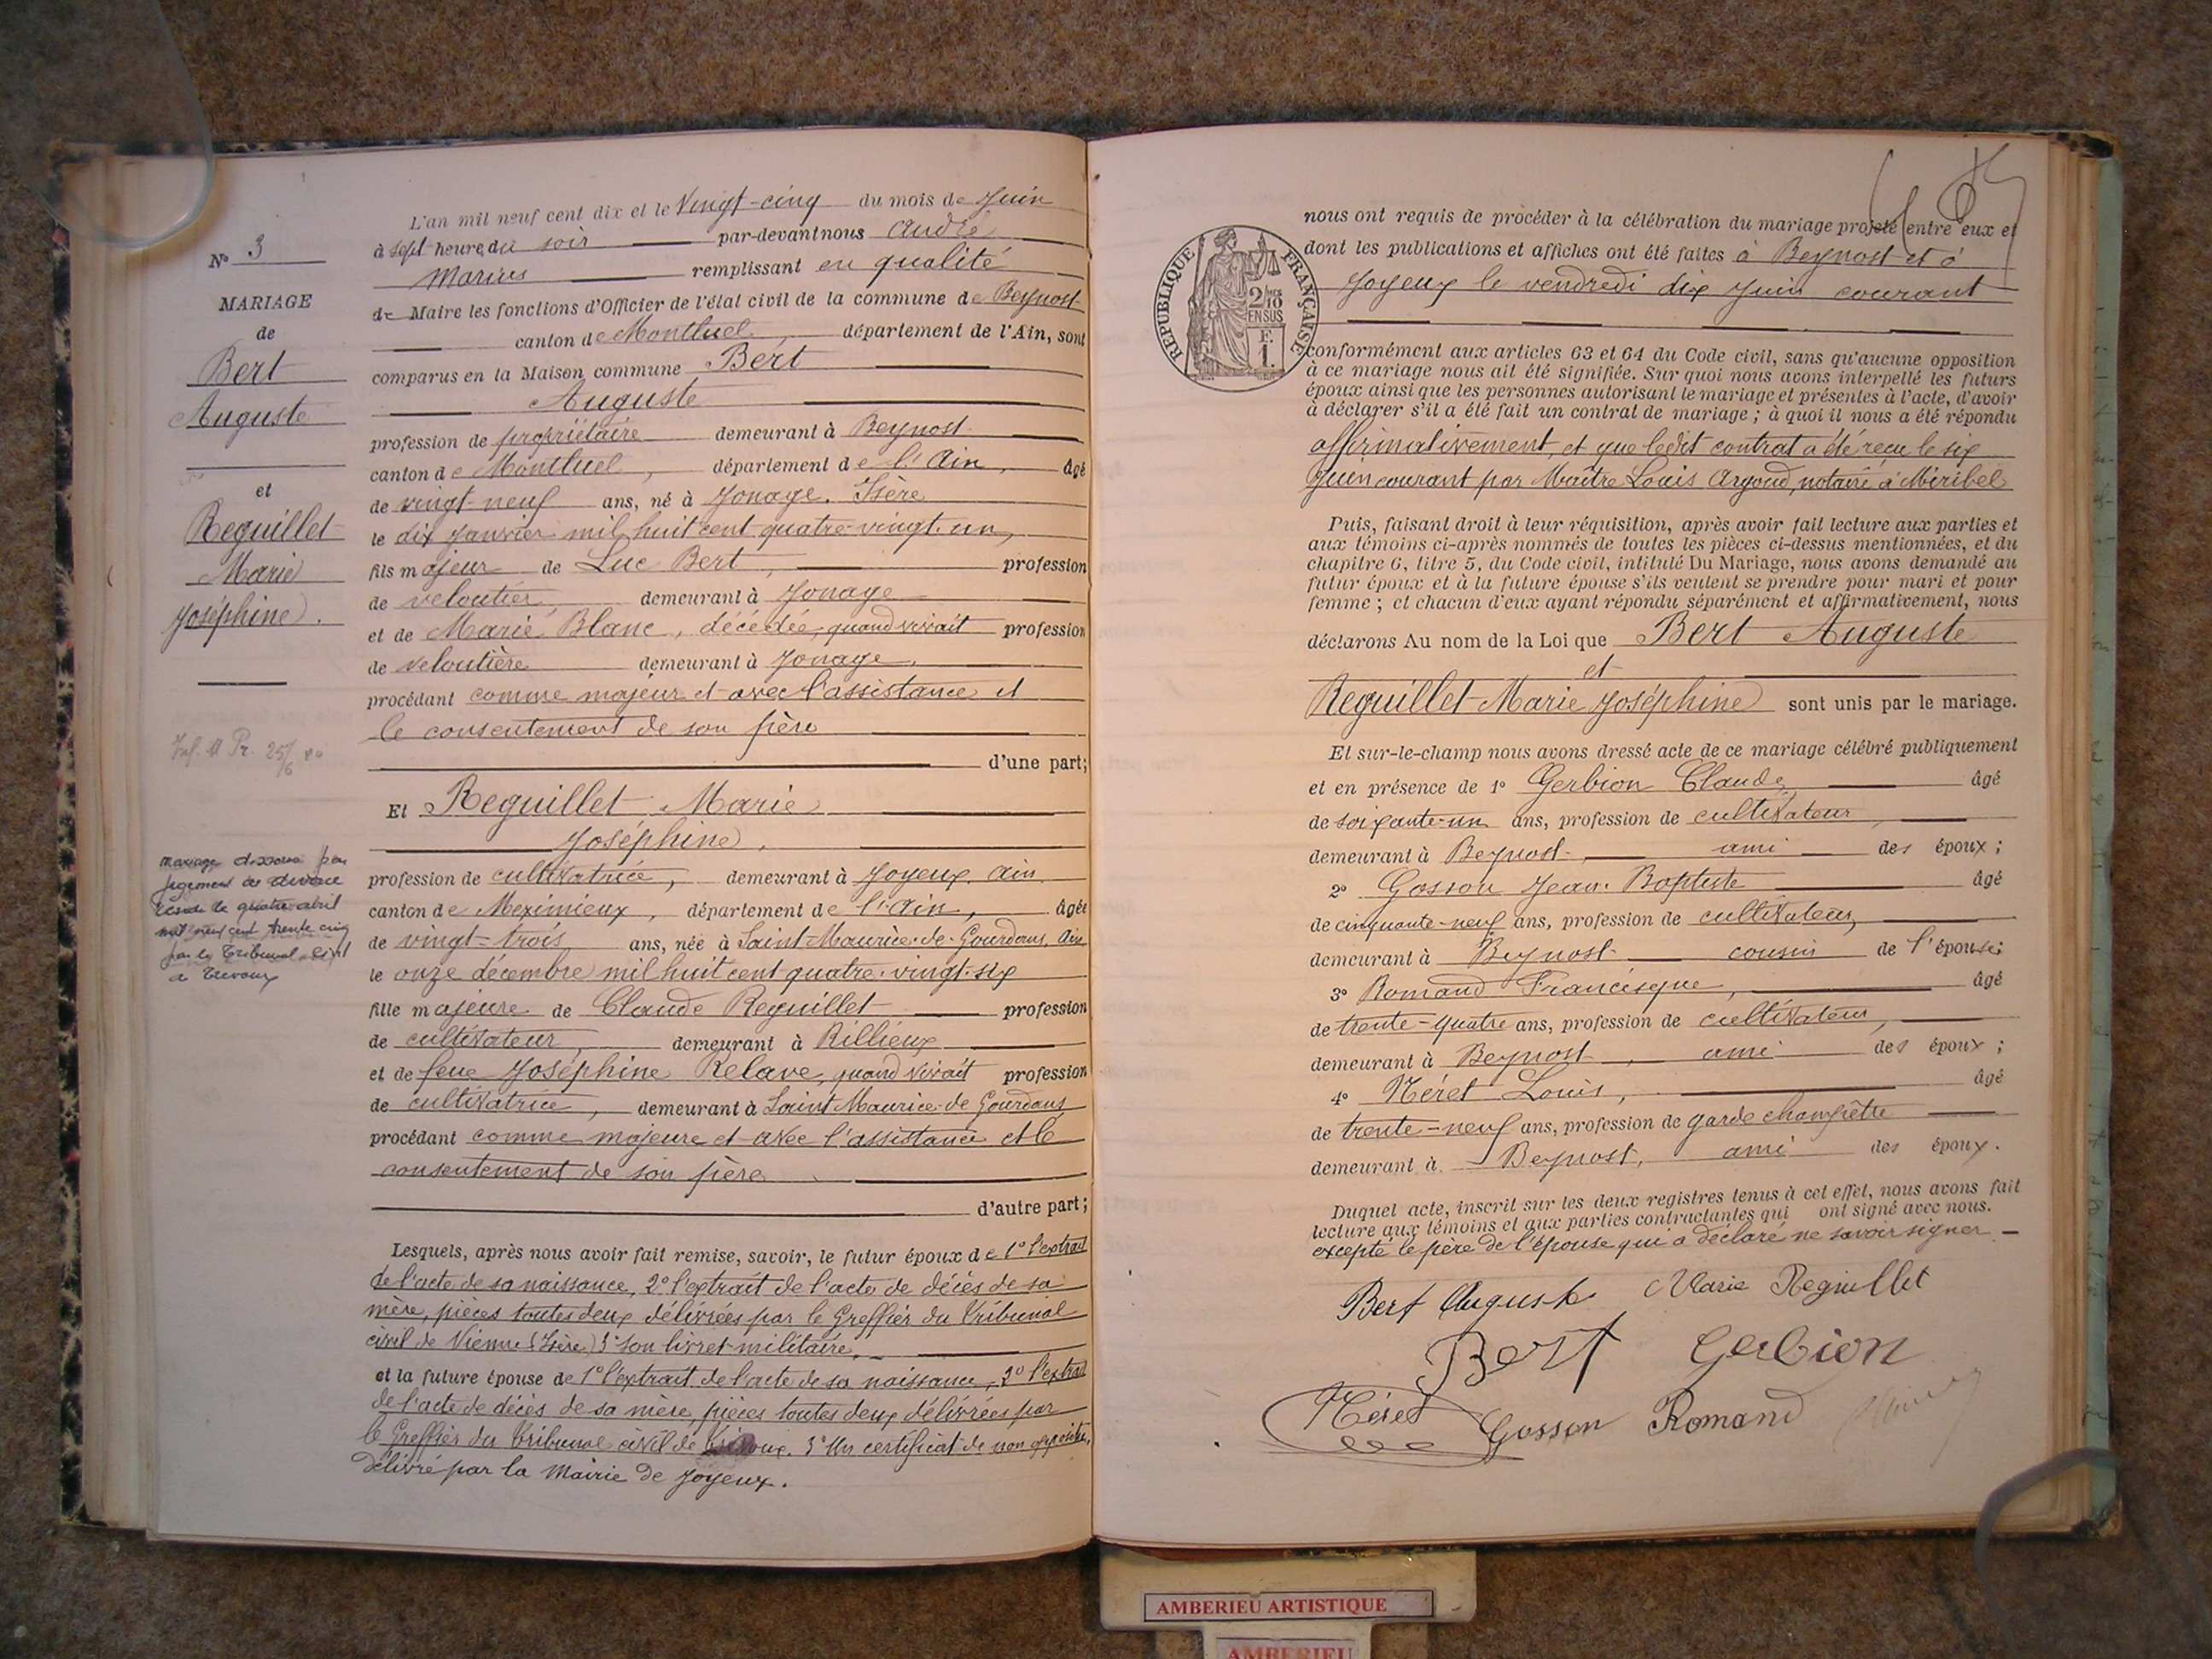 N° 3
MARIAGE
de
Bert
Auguste
et
Reguillet
Marie
Joséphine.
mariage dissous par
jugement de divorce
rendu le quatre avril
mil neuf cent trente cinq
par le Tribunal civil
de Trévoux
L'an mil neuf cent dix et le Vingt-cinq du mois de Juin
à sept heure du soir par-devant nous André
Marius remplissant en qualité
de Maire les fonctions d'Officier de l'état civil de la commune de Beynost
canton de Montluel département de l'Ain, sont
comparus en la Maison commune Bert
Auguste
profession de propriétaire demeurant à Beynost
canton de Montluel, département de l'Ain, âgé
de vingt-neuf ans, né à Jonage. Isère
le dix Janvier mil huit cent quatre-vingt-un,
fils majeur de Luc Bert, profession
de veloutier demeurant à Jonage
et de Marie Blanc, décédée, quand vivait profession
de veloutière demeurant à Jonage,
procédant comme majeur et avec l'assistance et
le consentement de son père
d'une part;
Et Reguillet Marie
Joséphine,
profession de cultivatrice, demeurant à Joyeux. Ain
canton de Meximieux, département de l'Ain, âgée
de vingt-trois ans, née à Saint-Maurice-de-Gourdans, Ain
le onze décembre mil huit cent quatre-vingt-six
fille majeure de Claude Reguillet profession
de cultivateur, demeurant à Rillieux
et de feue Joséphine Relave, quand vivait profession
de cultivatrice, demeurant à Saint Maurice-de Gourdans
procédant comme majeure et avec l'assistance et le
consentement de son père
d'autre part;
Lesquels, après nous avoir fait remise, savoir, le futur époux de 1° l'extrait
de l'acte de sa naissance, 2° l'extrait de l'acte de décès de sa
mère, pièces toutes deux délivrées par le Greffier du Tribunal
civil de Vienne (Isère) 3° son livret militaire,
et la future épouse de 1° l'extrait de l'acte de sa naissance, 2° l'extrait
de l'acte de décès de sa mère, pièces toutes deux délivrées par
le Greffier du Tribunal civil de Trévoux. 3° Un certificat de non opposition,
délivré par la Mairie de Joyeux.
RÉPUBLIQUE FRANÇAISE
2/10
EN SUS
F.
1.
nous ont requis de procéder à la célébration du mariage projeté entre eux et
dont les publications et affiches ont été faites à Beynost et à
Joyeux le vendredi dix Juin courant
conformément aux articles 63 et 64 du Code civil, sans qu'aucune opposition
à ce mariage nous ait été signifiée. Sur quoi nous avons interpellé les futurs
époux ainsi que les personnes autorisant le mariage et présentes à l'acte, d'avoir
à déclarer s'il a été fait un contrat de mariage ; à quoi il nous a été répondu
affirmativement, et que ledit contrat a été reçu le six
Juin courant par Maître Louis Argoud, notaire à Miribel
Puis, faisant droit à leur réquisition, après avoir fait lecture aux parties et
aux témoins ci-après nommés de toutes les pièces ci-dessus mentionnées, et du
chapitre 6, titre 5, du Code civil, intitulé Du Mariage, nous avons demandé au
futur époux et à la future épouse s'ils veulent se prendre pour mari et pour
femme ; et chacun d'eux ayant répondu séparément et affirmativement, nous
déclarons Au nom de la Loi que Bert Auguste
et
Reguillet Marie Joséphine sont unis par le mariage.
Et sur-le-champ nous avons dressé acte de ce mariage célébré publiquement
et en présence de 1° Gerbion Claude, âgé
de soixante-un ans, profession de cultivateur,
demeurant à Beynost, ami des époux ;
2° Gosson Jean-Baptiste âgé
de cinquante-neuf ans, profession de cultivateur,
demeurant à Beynost cousin de l'épouse;
3° Romand Francisque, âgé
de trente-quatre ans, profession de cultivateur,
demeurant à Beynost, ami des époux ;
4° Néret Louis, âgé
de trente-neuf ans, profession de garde champêtre
demeurant à Beynost, ami des époux.
Duquel acte, inscrit sur les deux registres tenus à cet effet, nous avons fait
lecture aux témoins et aux parties contractantes qui ont signé avec nous.
excepté le père de l'épouse qui a déclaré ne savoir signer
Bert Auguste Marie Reguillet
Bert Gerbion
Néret Gosson Romand
AMBERIEU ARTISTIQUE
AMBERIEU